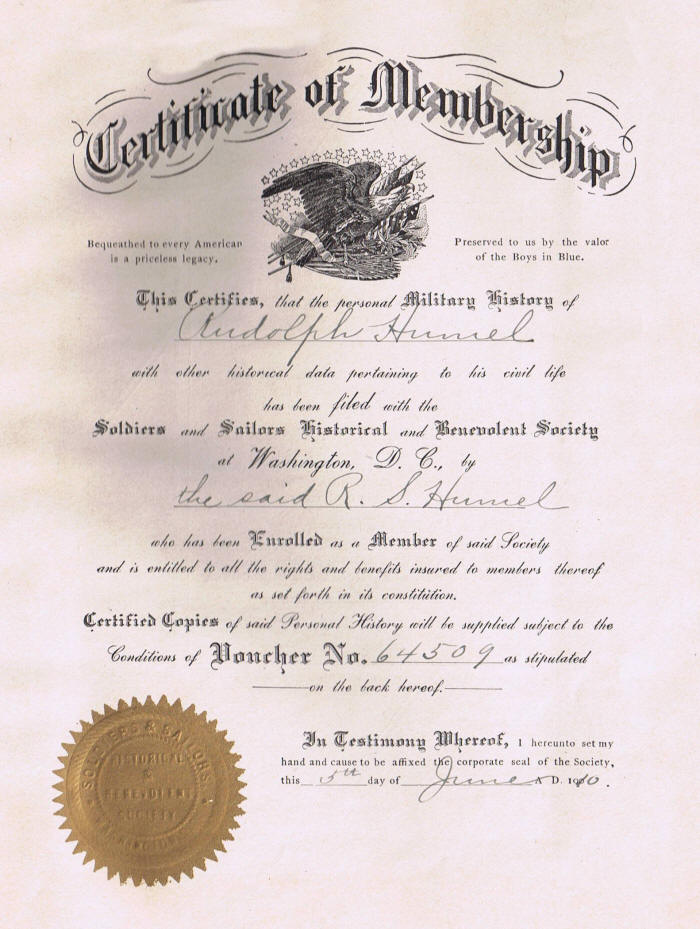 Certificate of Membership
Bequeathed to every American
is a priceless legacy.
Preserved to us by the valor
of the Boys in Blue.
This Certifies, that the personal Military History of
Rudolph Humel
with other historical data pertaining to his civil life
has been filed with the
Soldiers and Sailors Historical and Benevolent Society
at Washington, D. C., by
the said R. S. Humel
who has been Enrolled as a Member of said Society
and is entitled to all the rights and benefits insured to members thereof
as set forth in its constitution.
Certified Copies of said Personal History will be supplied subject to the
Conditions of Voucher No. 64509 as stipulated
on the back hereof.
In Testimony Whereof, I hereunto set my
hand and cause to be affixed the corporate seal of the Society,
this 5th day of June A. D. 1910.
SOLDIERS & SAILORS
HISTORICAL
&
BENEVOLENT
SOCIETY